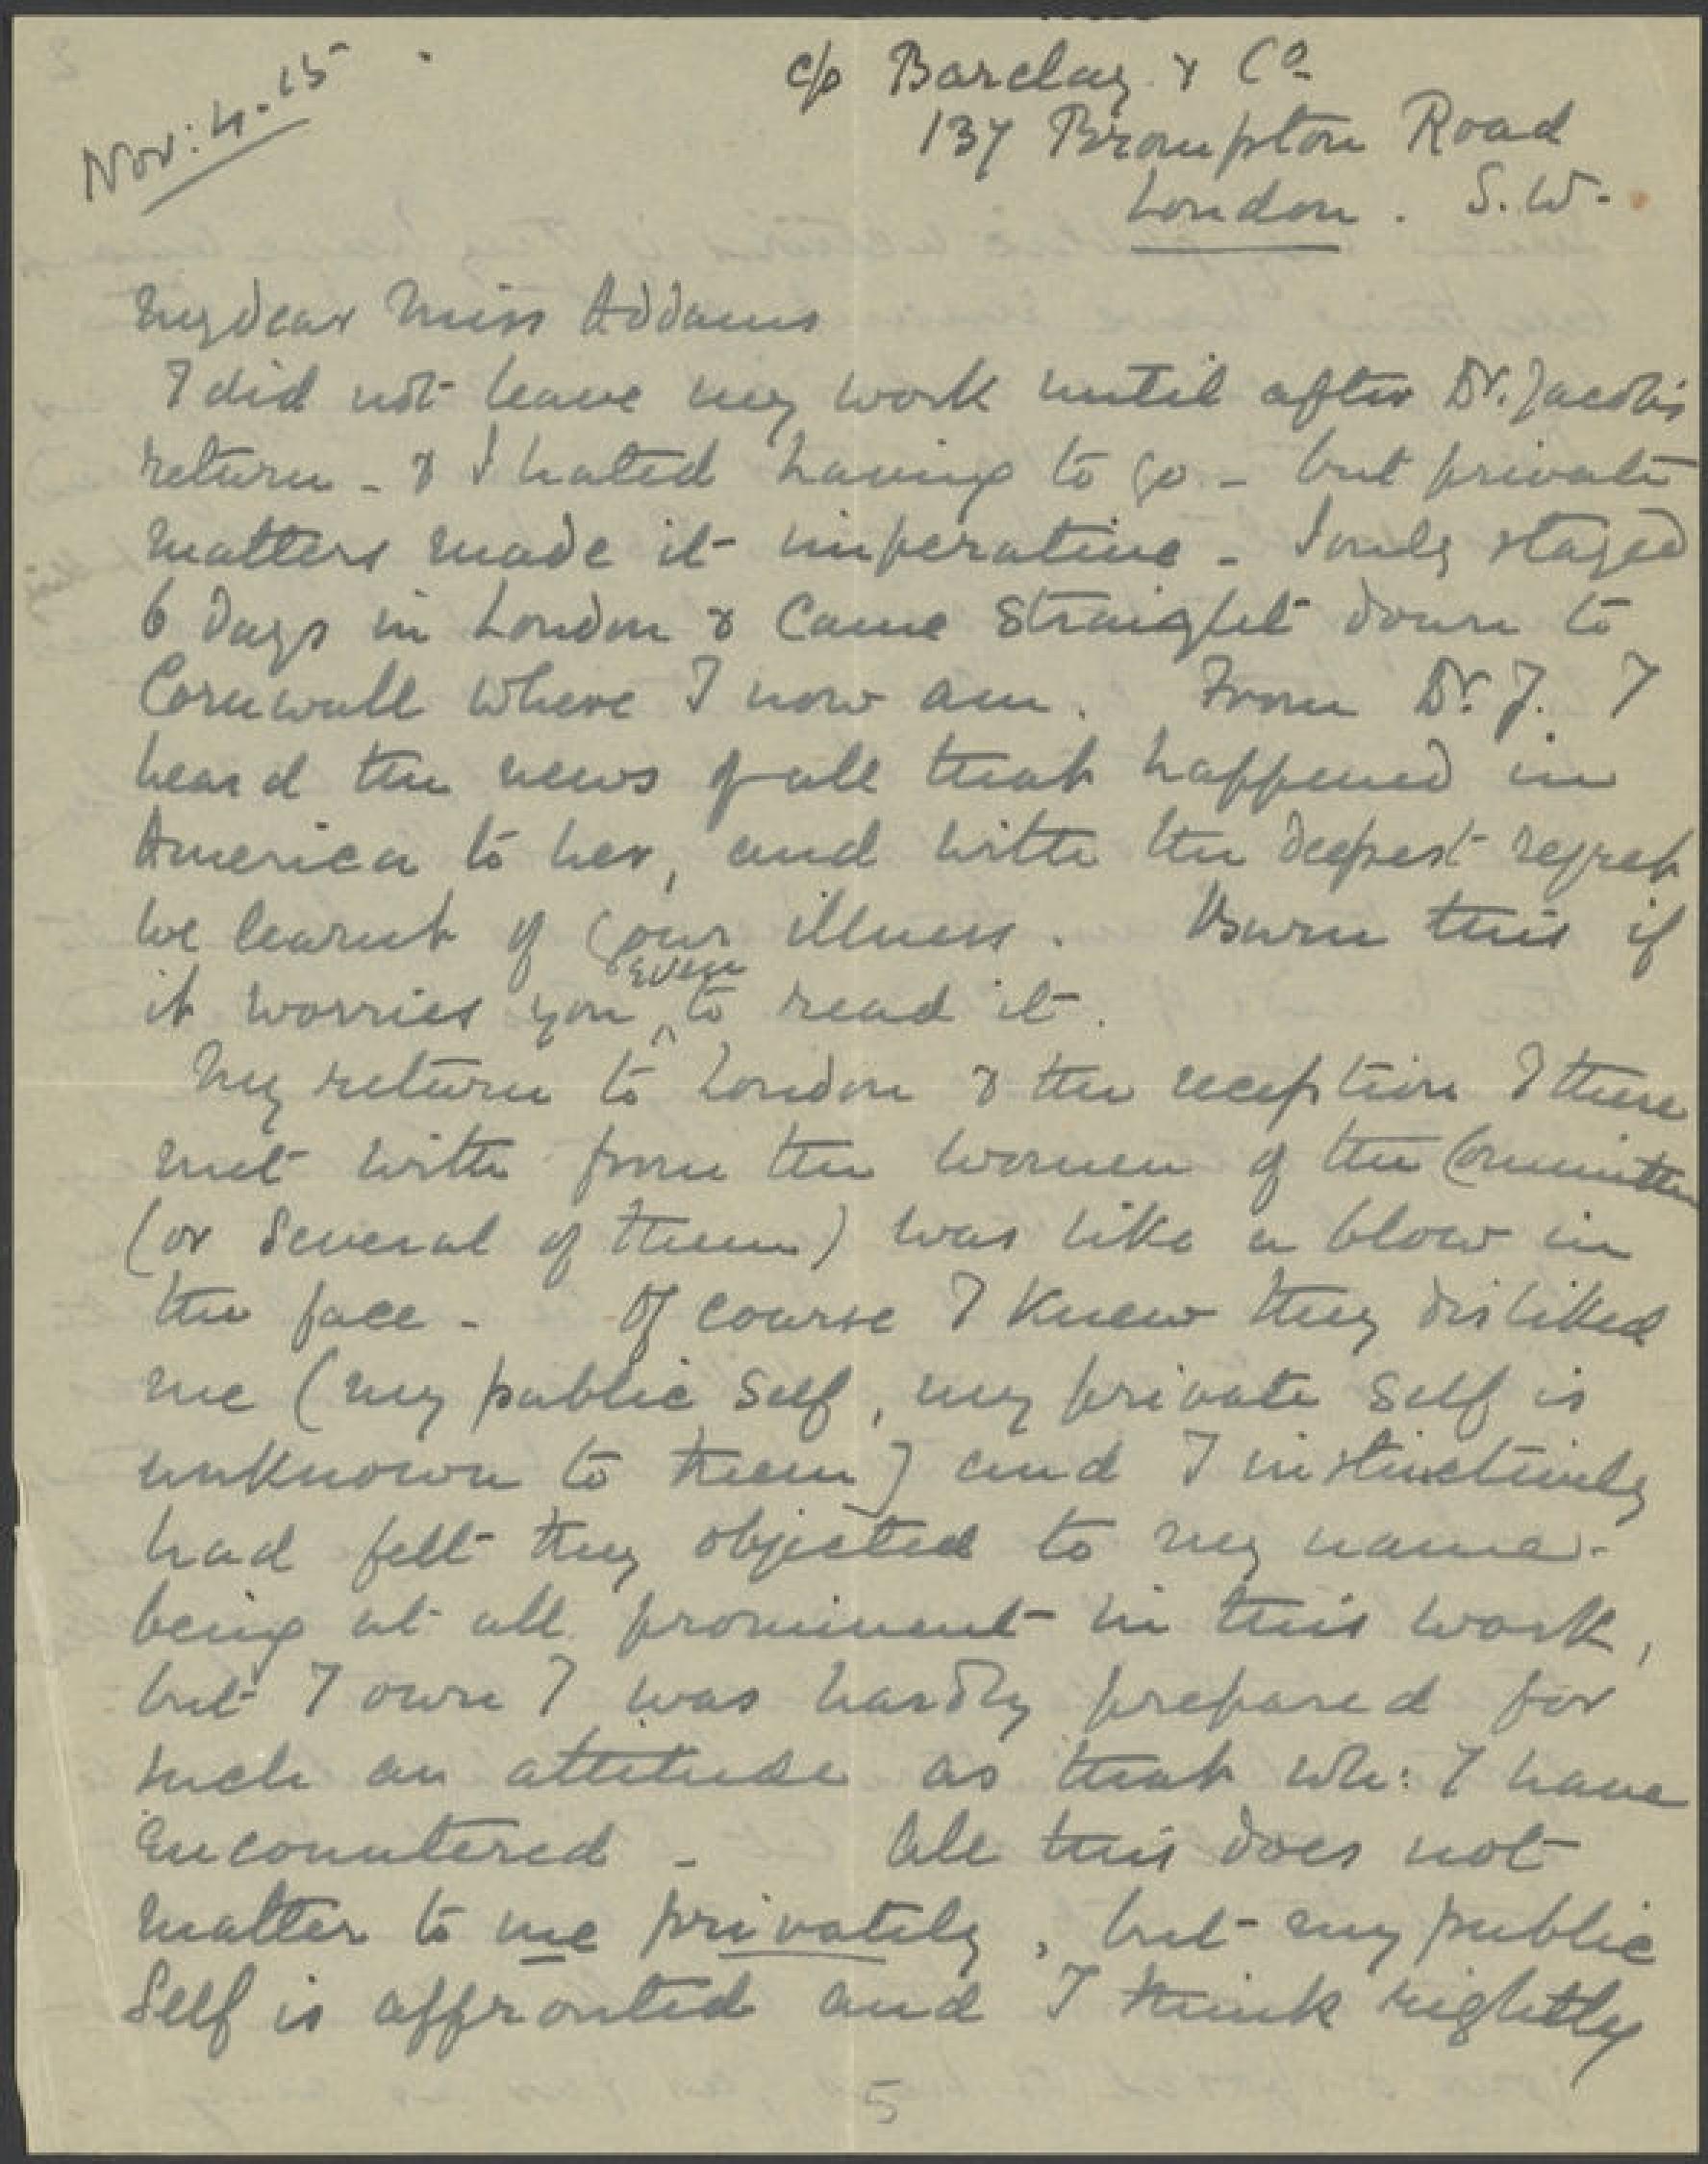 Nov: 4. 15
c/o Barclay & Co
137 Brompton Road
London. S.W.
My dear Miss Addams
I did not leave my work until after Dr. Jacobs
return - & I hated having to go - but private
matters made it imperative - I only stayed
6 days in London & came straight down to
Cornwall where I now am. From Dr. J. I
heard the news of all that happened in
America to her, and with the deepest regret
we learnt of your illness. Burn this if
it worries you even to read it.
My return to London & the reception I there
met with from the women of the Committee
(or several of them) was like a blow in
the face - Of course I knew they disliked
me (my public self, my private self is
unknown to them) and I instinctively
had felt they objected to my name
being at all prominent in this work,
but I own I was hardly prepared for
such an attitude as that wh: I have
encountered - All this does not
matter to me privately, but my public
self is affronted and I think rightly
5